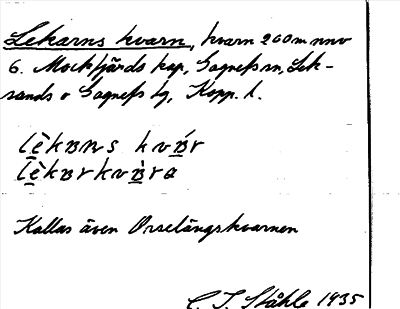 Lekarns kvarn, kvarn 260 m nnv
6. Mockfjärds kap, Gagnefs sn, Lek-
sands o Gagnefs tg, Kopp. l.
lèkarns kvár
lèkarkvàra
Kallas även Orselängskvarnen
C. I. Ståhle 1935